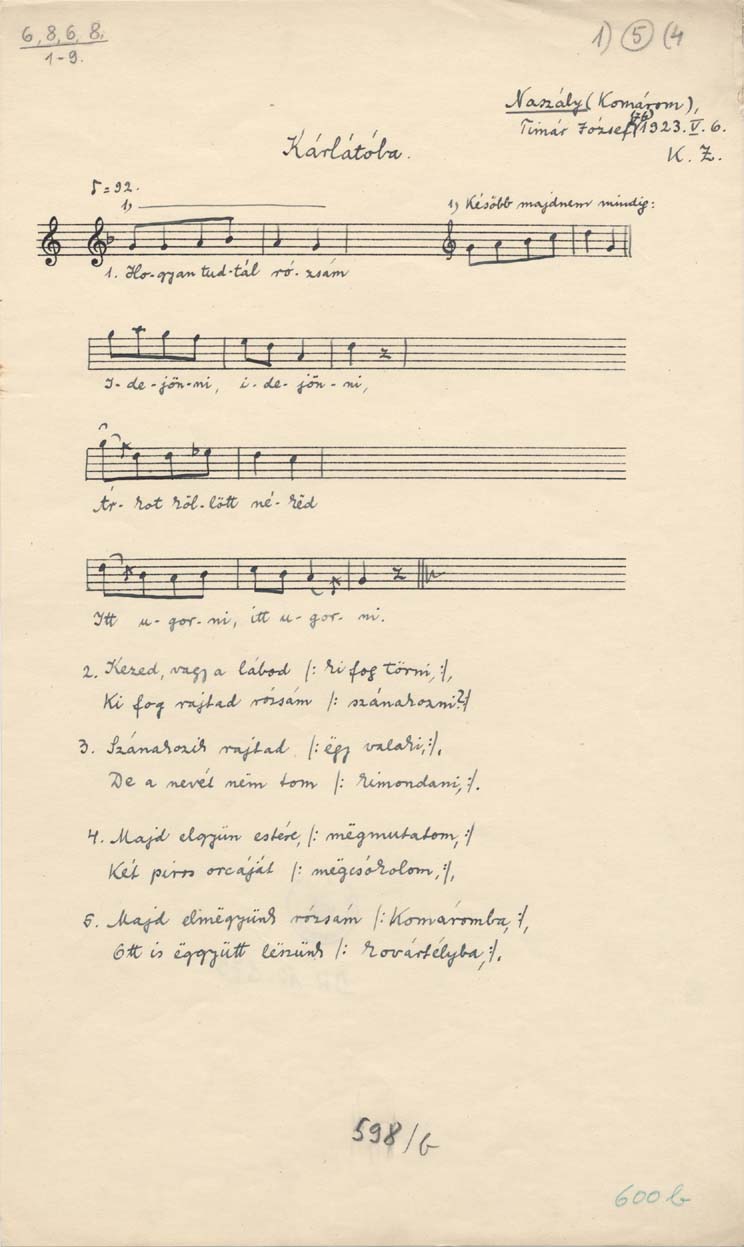 6, 8, 6, 8.
1-9.
1) 5 (4
Naszály (Komárom),
Timár József 1923. V. 6.
K. Z.
Kárlátóba.
=92.
1)
1) Később majdnem mindig:
1. Ho-gyan tud-tál ró-zsám
I-de-jön-ni, i-de-jön-ni,
Ár-kot köl-lött né-këd
Itt u-gor-ni, itt u-gor-ni.
2. Kezed, vagy a lábod /: ki fog törni, :/,
Ki fog rajtad rózsám /: szánakozni? :/
3. Szánakozik rajtad /: ëgy valaki, :/.
De a nevét nem tom /: kimondani, :/.
4. Majd elgyün estére, /: mëgmutatom, :/
Két piros orcáját /: mëgcsókolom, :/,
5. Majd elmëgyünk rózsám /: Komáromba, :/,
Ott is ëggyütt lëszünk /: kovártélyba, :/.
598/b
600 b